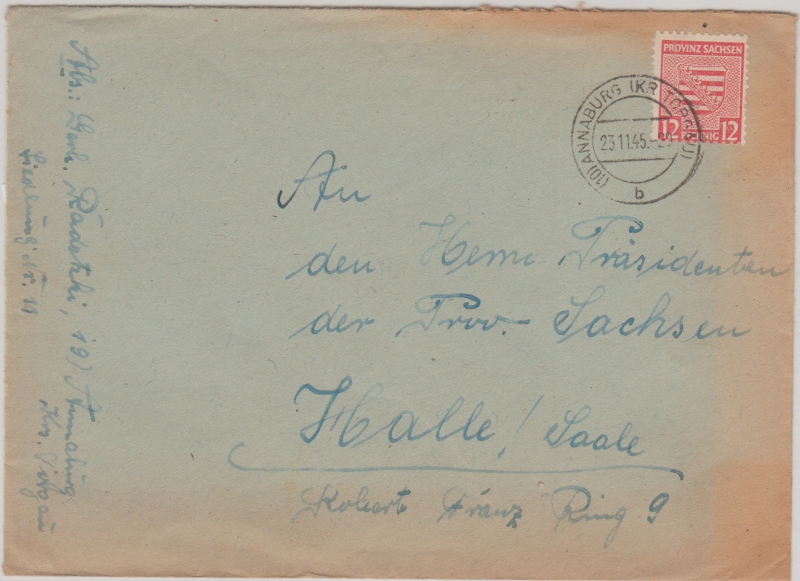 PROVINZ SACHSEN
12 PFENNIG 12
(10) ANNABURG (KR TORGAU)
23.11.45.-20
b
An
den Herrn Präsidenten
der Prov.- Sachsen
Halle/Saale
Robert Franz Ring 9
Abs.: Gerh. Radetzki, 19) Annaburg
Siedlung Nr. 11
Krs. Torgau